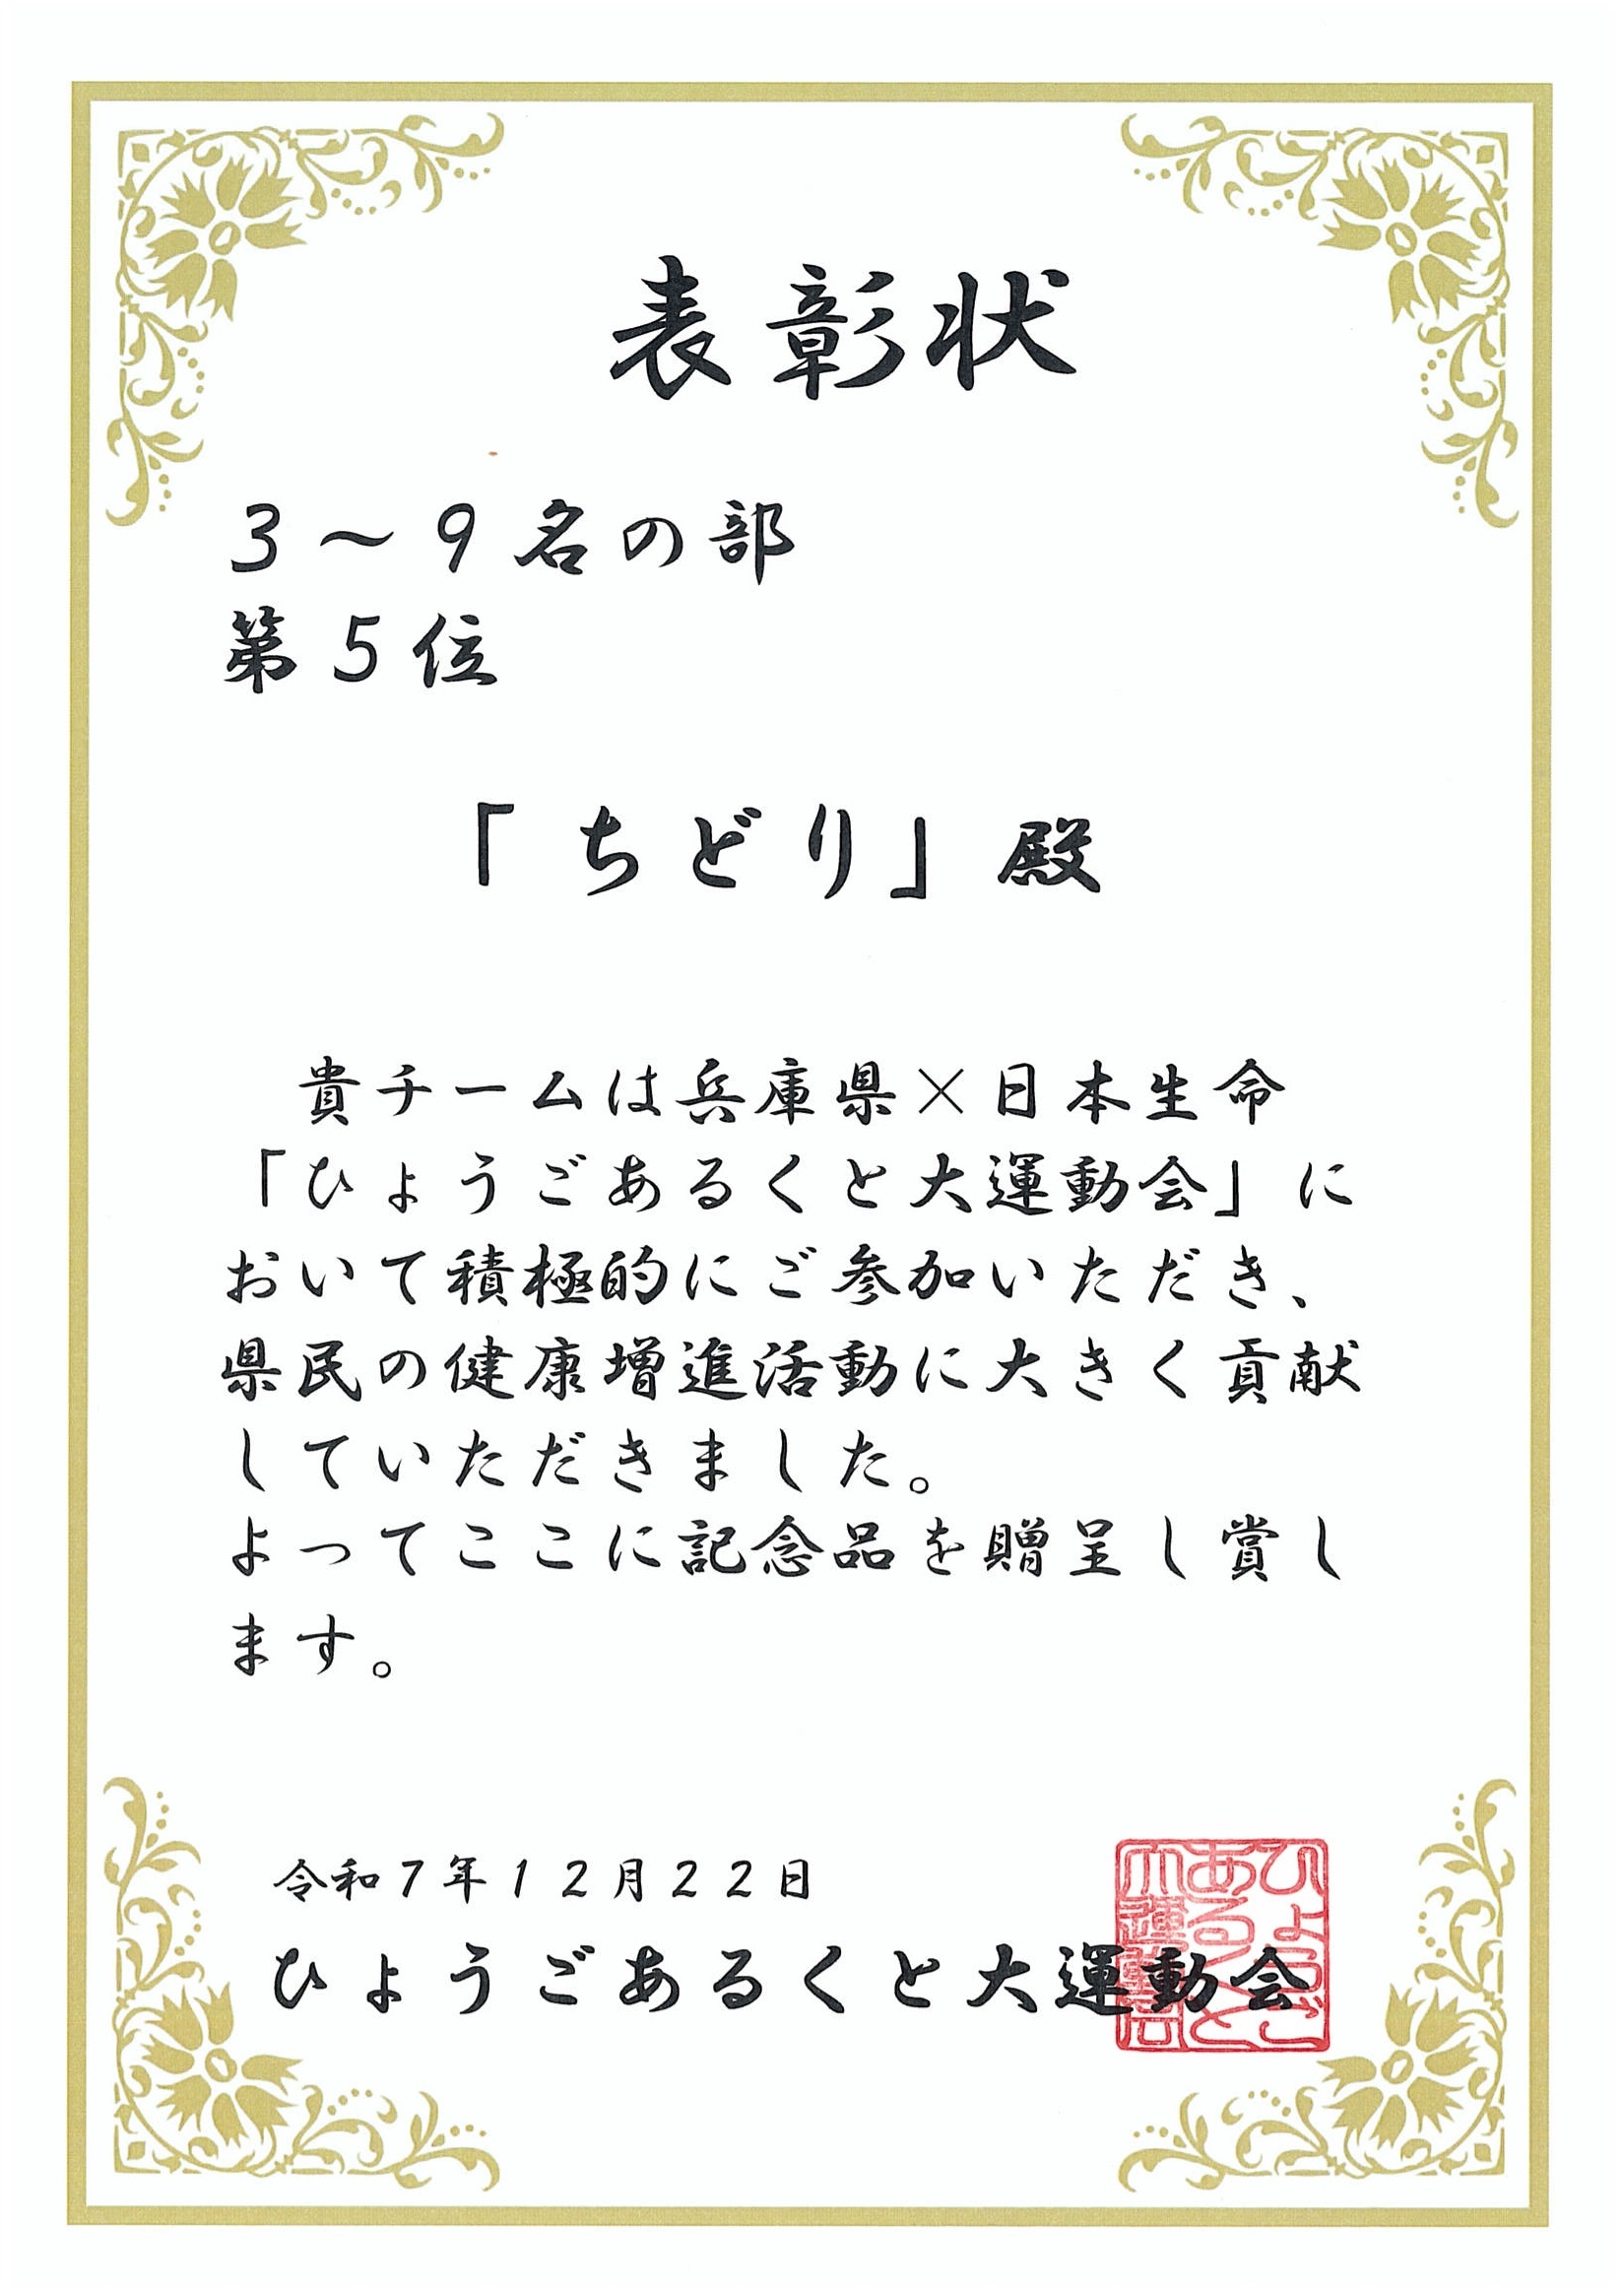 表彰状
３～９名の部
第５位
「ちどり」殿
貴チームは兵庫県×日本生命
「ひょうごあるくと大運動会」に
おいて積極的にご参加いただき、
県民の健康増進活動に大きく貢献
していただきました。
よってここに記念品を贈呈し賞し
ます。
令和７年１２月２２日
ひょうごあるくと大運動会
ひょうご
あるくと
大運動会